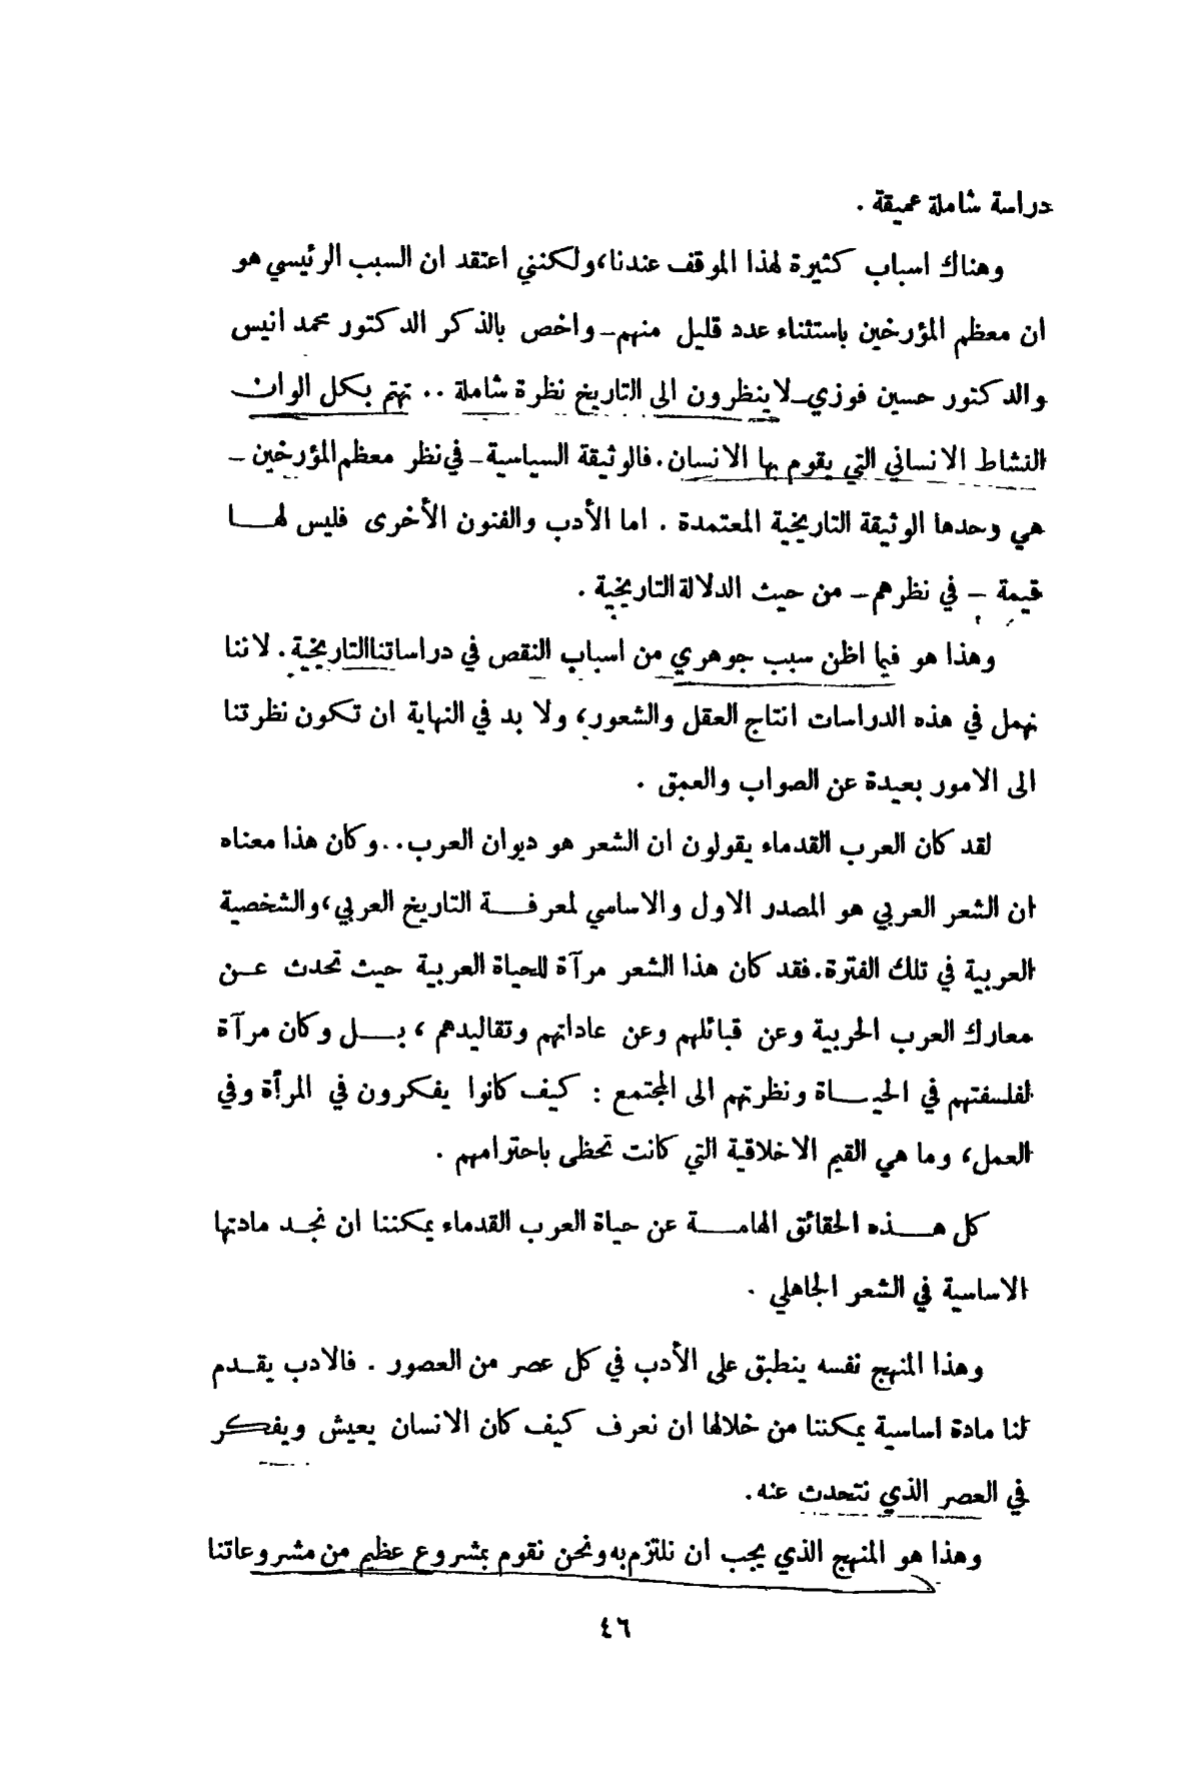 دراسة شاملة عميقة .
وهناك اسباب كثيرة لهذا الموقف عندنا، ولكنني اعتقد ان السبب الرئيسي هو
ان معظم المؤرخين باستثناء عدد قليل منهم – واخص بالذكر الدكتور محمد انيس
والدكتور حسين فوزي – لاينظرون الى التاريخ نظرة شاملة .. تهتم بكل الوان
النشاط الانساني التي يقوم بها الانسان . فالوثيقة السياسية – في نظر معظم المؤرخين –
هي وحدها الوثيقة التاريخية المعتمدة . اما الأدب والفنون الأخرى فليس لهـــا
قيمة – في نظرهم – من حيث الدلالة التاريخية .
وهذا هو فيما اظن سبب جوهري من اسباب النقص في دراساتنا التاريخية . لاننا
نهمل في هذه الدراسات انتاج العقل والشعور، ولا بد في النهاية ان تكون نظرتنا
الى الامور بعيدة عن الصواب والعمق .
لقد كان العرب القدماء يقولون ان الشعر هو ديوان العرب .. وكان هذا معناه
ان الشعر العربي هو المصدر الاول والاساسي لمعرفـــة التاريخ العربي، والشخصية
العربية في تلك الفترة . فقد كان هذا الشعر مرآة للحياة العربية حيث تحدث عـــن
معارك العرب الحربية وعن قبائلهم وعن عاداتهم وتقاليدهم ، بـــل وكان مرآة
لفلسفتهم في الحيـــاة ونظرتهم الى المجتمع : كيف كانوا يفكرون في المرأة وفي
العمل، وما هي القيم الاخلاقية التي كانت تحظى باحترامهم .
كل هـــذه الحقائق الهامـــة عن حياة العرب القدماء يمكننا ان نجـد مادتها
الاساسية في الشعر الجاهلي .
وهذا المنهج نفسه ينطبق على الأدب في كل عصر من العصور . فالادب يقـدم
لنا مادة اساسية يمكننا من خلالها ان نعرف كيف كان الانسان يعيش ويفكر
في العصر الذي نتحدث عنه .
وهذا هو المنهج الذي يجب ان نلتزم به ونحن نقوم بمشروع عظيم من مشروعاتنا
٤٦